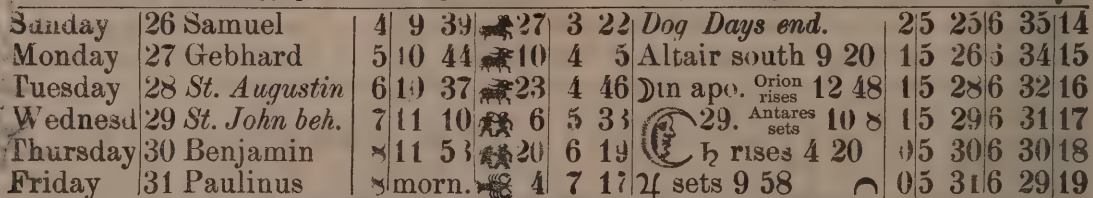 Sunday 26 Samuel 4 9 39 27 3 22 Dog Days end. 2 5 25 6 35 14
Monday 27 Gebhard 5 10 44 10 4 5 Altair south 9 20 1 5 26 6 34 15
Tuesday 28 St. Augustin 6 10 37 23 4 46 ☽in apo. Orion rises 12 48 1 5 28 6 32 16
Wednesd 29 St. John beh. 7 11 10 6 5 33 29. Antares sets 10 8 1 5 29 6 31 17
Thursday 30 Benjamin 8 11 53 20 6 19 ♄ rises 4 20 0 5 30 6 30 18
Friday 31 Paulinus 8 morn. 4 7 17 ♃ sets 9 58 0 5 31 6 29 19